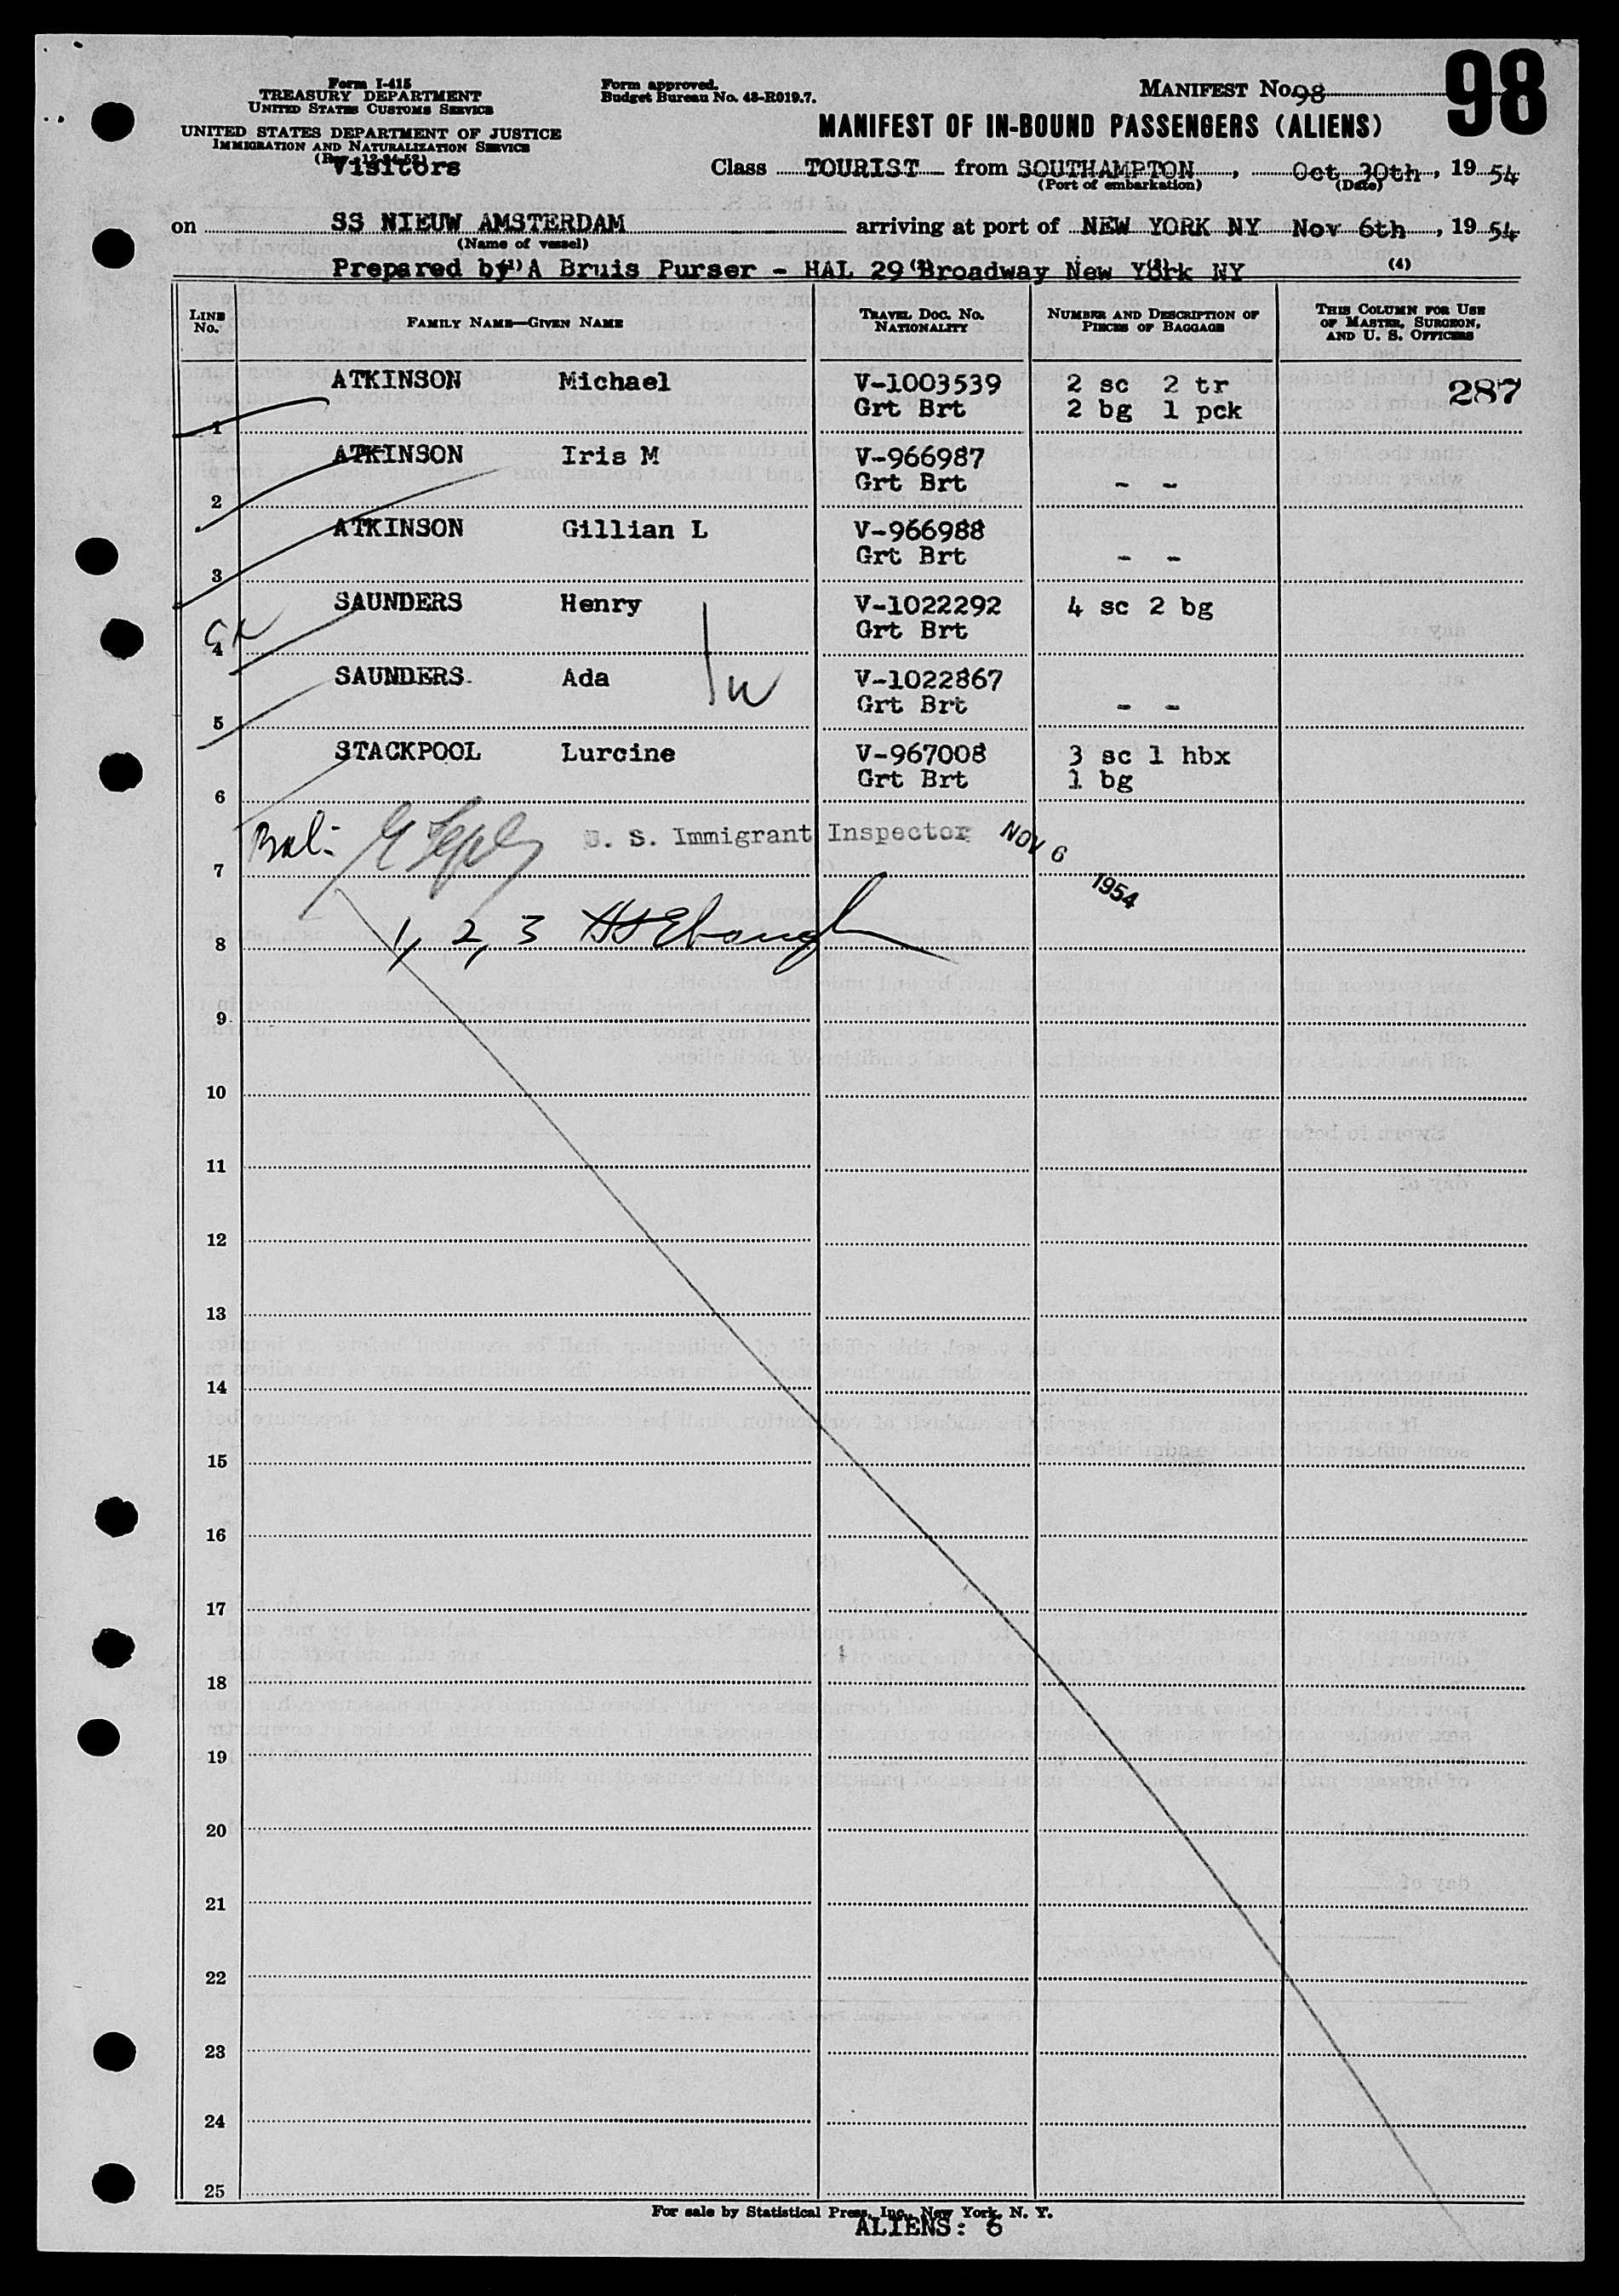 98
Form I-415
TREASURY DEPARTMENT
UNITED STATES CUSTOMS SERVICE
UNITED STATES DEPARTMENT OF JUSTICE
IMMIGRATION AND NATURALIZATION SERVICE
Visitors
Form approved.
Budget Bureau No. 43-R019.7.
MANIFEST No. 98
MANIFEST OF IN-BOUND PASSENGERS (ALIENS)
Class TOURIST from SOUTHAMPTON, Oct 30th, 19 54
(Port of embarkation) (Date)
on SS NIEUW AMSTERDAM arriving at port of NEW YORK NY Nov 6th, 19 54
(Name of vessel)
Prepared by A Bruis Purser - HAL 29 Broadway New York NY (4)
LINE No. FAMILY NAME—GIVEN NAME TRAVEL DOC. NO. NATIONALITY NUMBER AND DESCRIPTION OF PIECES OF BAGGAGE THIS COLUMN FOR USE OF MASTER, SURGEON, AND U. S. OFFICERS
ATKINSON Michael V-1003539 2 sc 2 tr 287
1 Grt Brt 2 bg 1 pck
ATKINSON Iris M V-966987
2 Grt Brt - -
ATKINSON Gillian L V-966988
3 Grt Brt - -
SAUNDERS Henry V-1022292 4 sc 2 bg
4 Grt Brt
SAUNDERS Ada V-1022867
5 Grt Brt - -
STACKPOOL Lurcine V-967008 3 sc 1 hbx
6 Grt Brt 1 bg
Bal: U. S. Immigrant Inspector NOV 6 1954
7
8 1, 2, 3
9
10
11
12
13
14
15
16
17
18
19
20
21
22
23
24
25
For sale by Statistical Press, Inc., New York, N. Y.
ALIENS: 6